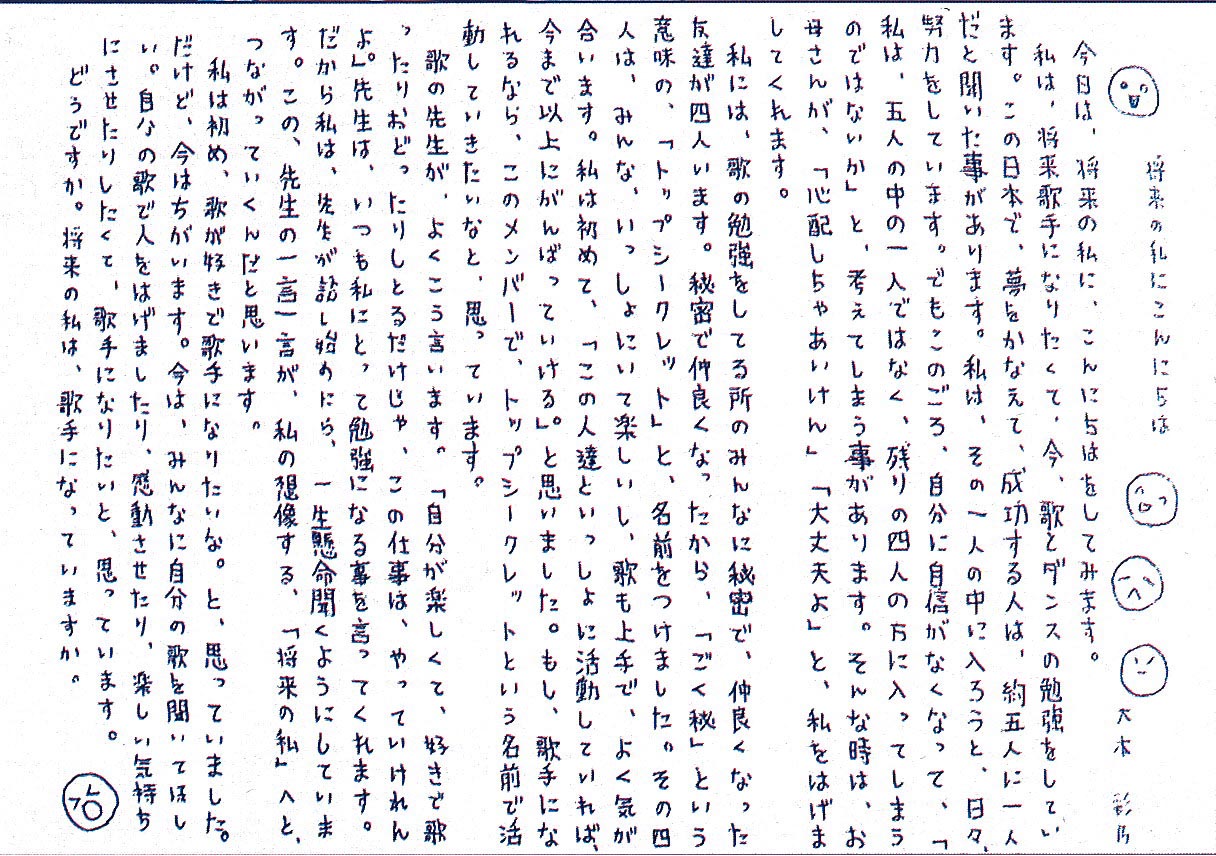 将来の私にこんにちは
大本 彩乃
今日は、将来の私に、こんにちはをしてみます。
私は、将来歌手になりたくて、今、歌とダンスの勉強をしてい
ます。この日本で、夢をかなえて、成功する人は、約五人に一人
だと聞いた事があります。私は、その一人の中に入ろうと、日々、
努力をしています。でもこのごろ、自分に自信がなくなって、「
私は、五人の中の一人ではなく、残りの四人の方に入ってしまう
のではないか」と、考えてしまう事があります。そんな時は、お
母さんが、「心配しちゃあいけん」「大丈夫よ」と、私をはげま
してくれます。
私には、歌の勉強をしてる所のみんなに秘密で、仲良くなった
友達が四人います。秘密で仲良くなったから、「ごく秘」という
意味の、「トップシークレット」と、名前をつけました。その四
人は、みんな、いっしょにいて楽しいし、歌も上手で、よく気が
合います。私は初めて、「この人達といっしょに活動していれば、
今まで以上にがんばっていける。」と思いました。もし、歌手にな
れるなら、このメンバーで、トップシークレットという名前で活
動していきたいなと、思っています。
歌の先生が、よくこう言います。「自分が楽しくて、好きで歌
ったりおどったりしとるだけじゃ、この仕事は、やっていけれん
よ」先生は、いつも私にとって勉強になる事を言ってくれます。
だから私は、先生が話し始めたら、一生懸命聞くようにしていま
す。この、先生の一言一言が、私の想像する、「将来の私」へと、
つながっていくんだと思います。
私は初め、歌が好きで歌手になりたいな。と、思っていました。
だけど、今はちがいます。今は、みんなに自分の歌を聞いてほし
い。自分の歌で人をはげましたり、感動させたり、楽しい気持ち
にさせたりしたくて、歌手になりたいと、思っています。
どうですか。将来の私は、歌手になっていますか。